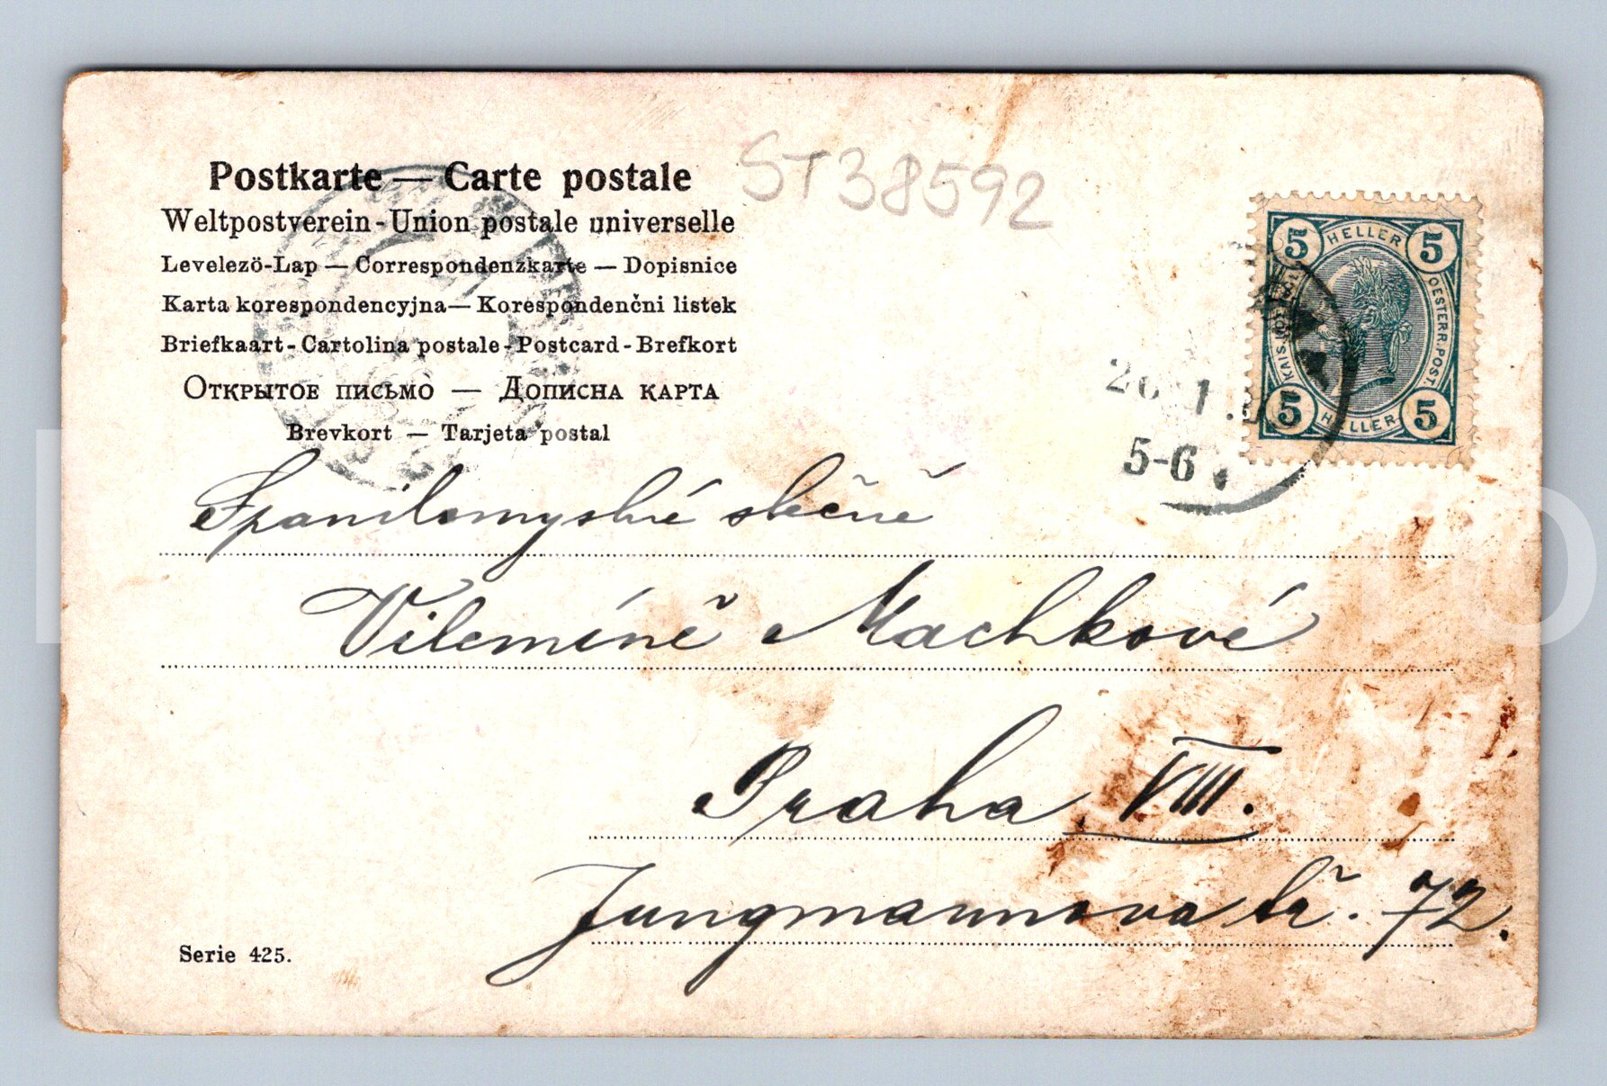 Postkarte — Carte postale
Weltpostverein - Union postale universelle
Levelezö-Lap — Correspondenzkarte — Dopisnice
Karta korespondencyjna — Korespondenčni listek
Briefkaart - Cartolina postale - Postcard - Brefkort
Открытое письмо — Дописна карта
Brevkort — Tarjeta postal
ST38592
5 HELLER 5
KAIS. KÖN. OESTERR. POST.
5 HELLER 5
5-6
Spanilomyslné slečně
Vilemíně Machkové
Praha VIII.
Jungmannova tř. 72.
Serie 425.